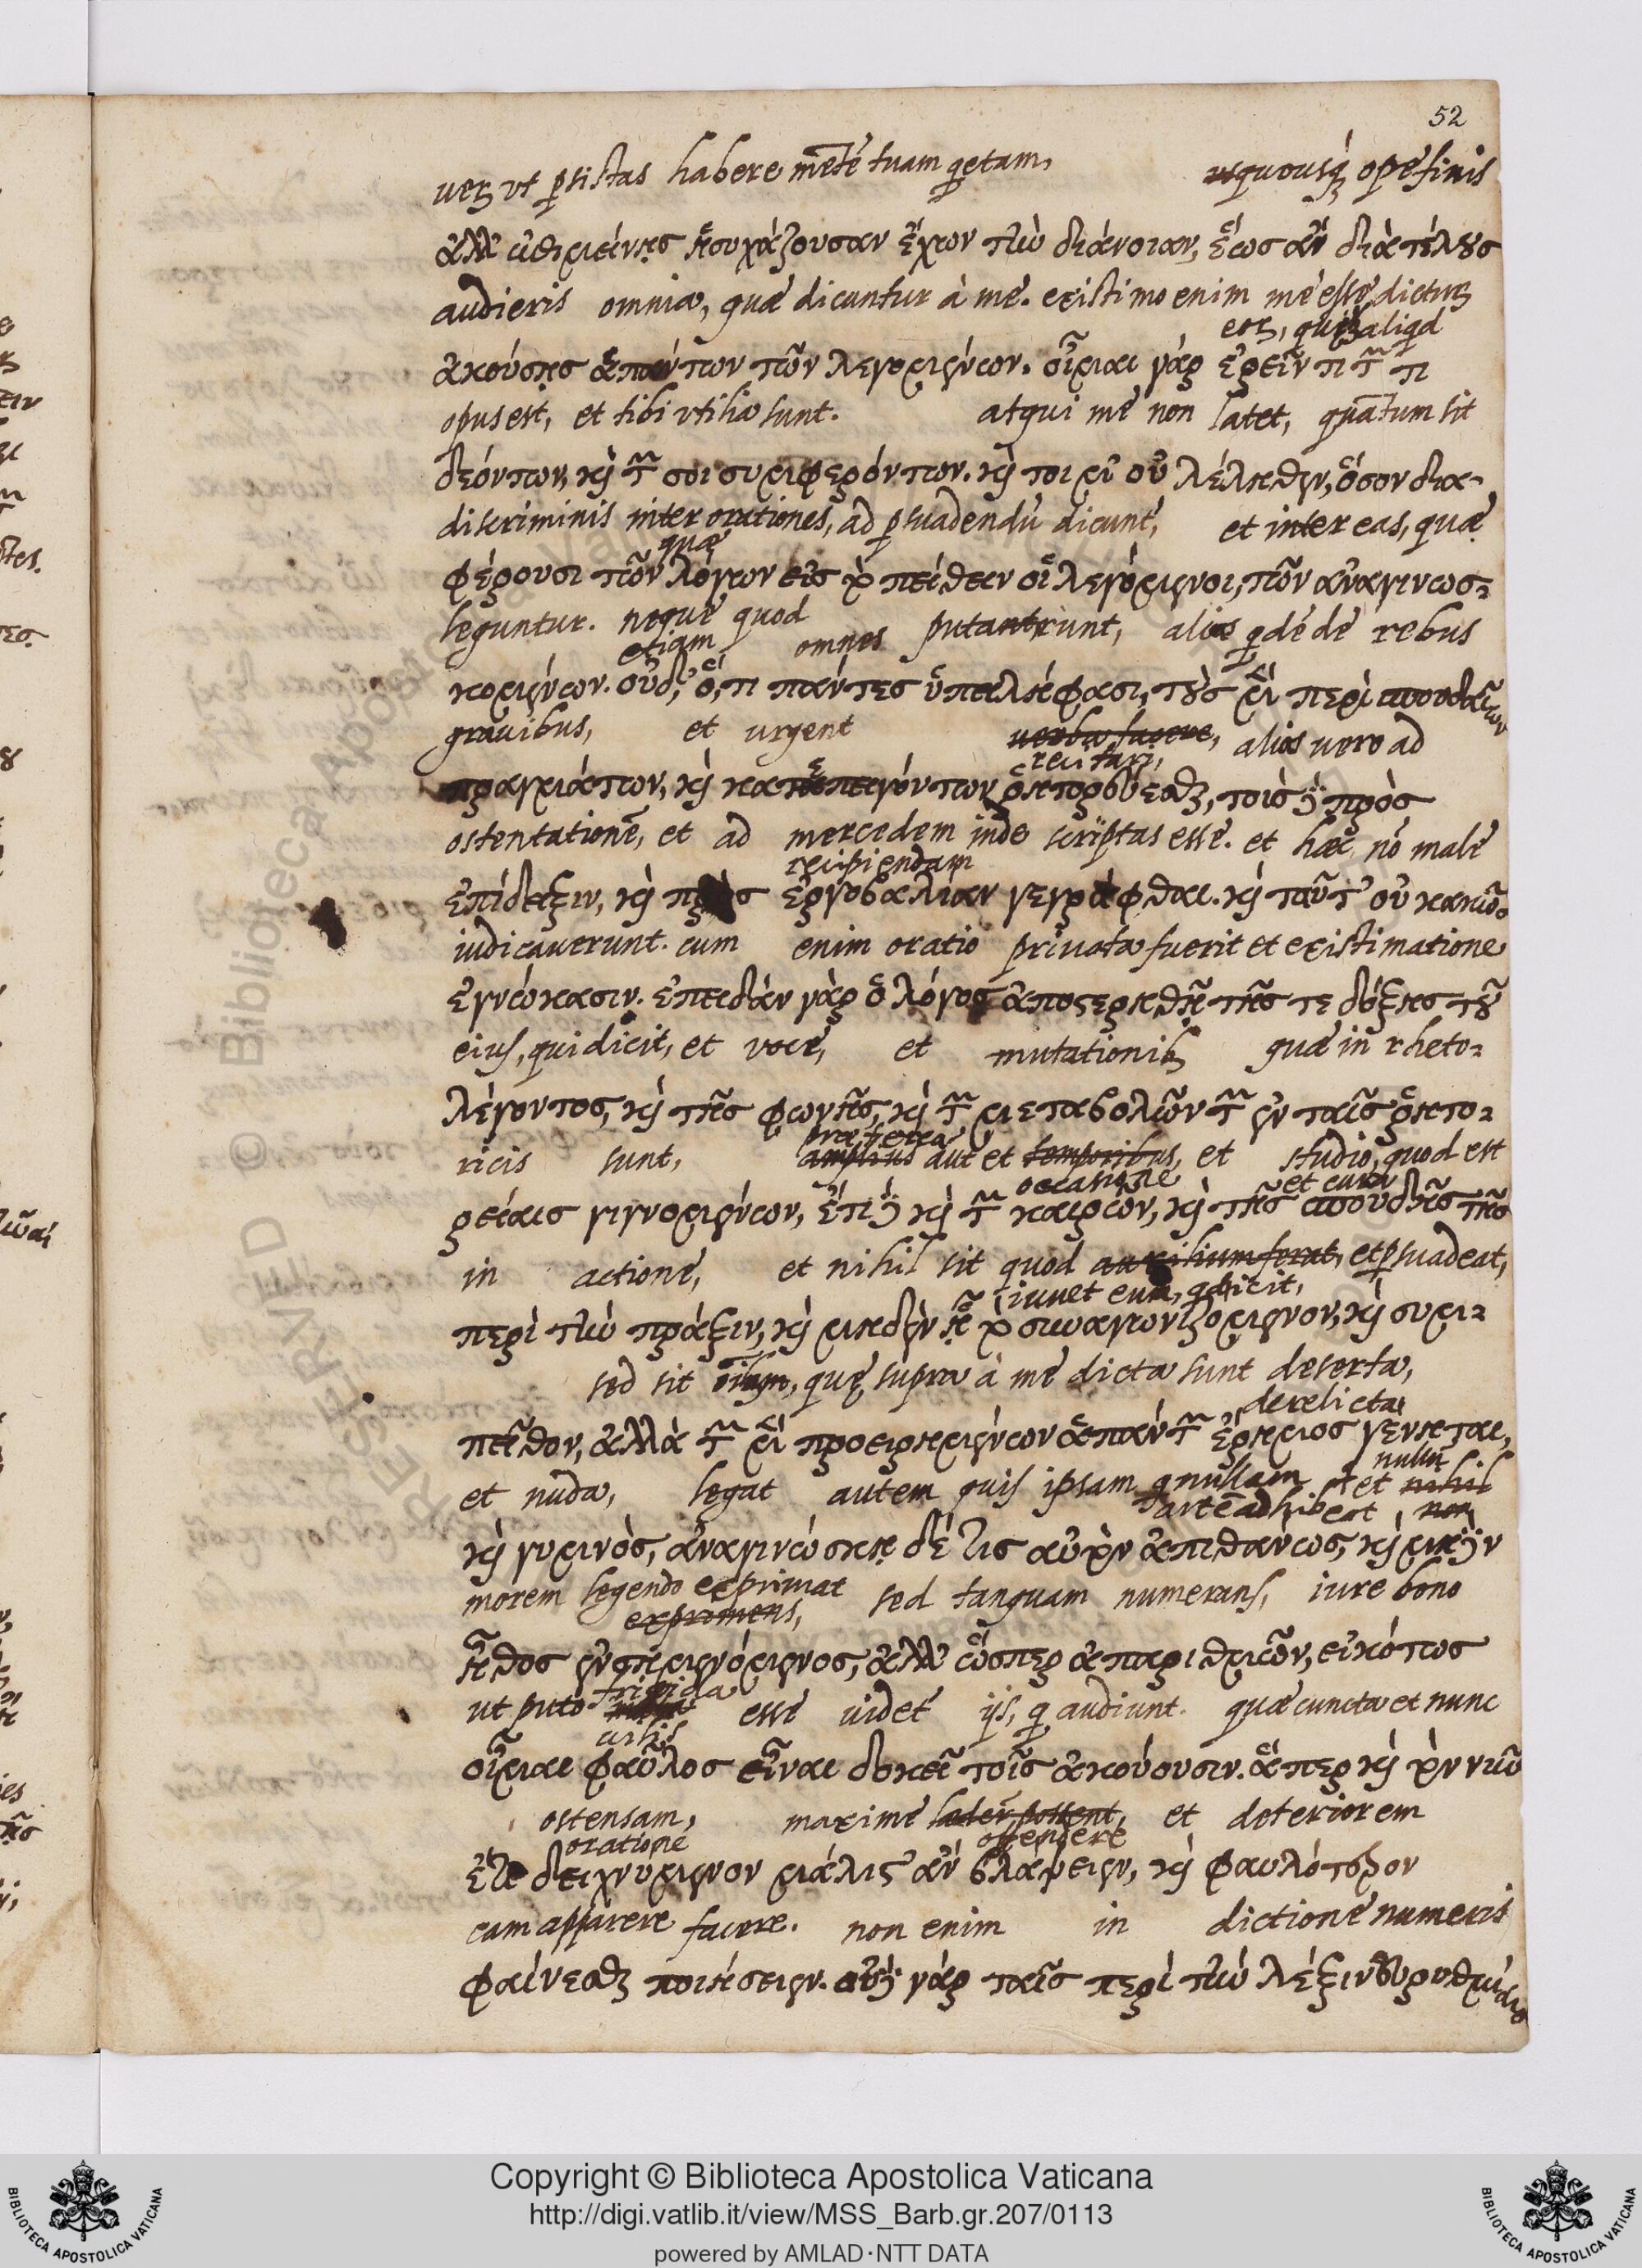 52
uerȝ ut ꝑsistas habere mẽtẽ tuam q̃etam, quousq́ȝ opẽ finis
ἀλλ' ἐπιμείνῃς ἡσυχάζουσαν ἔχων τὴν διάνοιαν, ἕως ἂν διὰ τέλους
audieris omnia, quæ dicuntur à me. existimo enim me esse dicturȝ
eoȝ, quibȝ aliqd
ἀκούσῃς ἁπάντων τῶν λεγομένων. οἶμαι γὰρ ἐρεῖν τι τῶν τι
opus est, et tibi utilia sunt. atqui me non latet, quãtum sit
δεόντων, καὶ τῶν σοι συμφερόντων. καί τοι μ' οὐ λέληθεν, ὅσον δια-
discriminis inter orationes, ad ꝑsuadendũ dicunt, et inter eas, quæ
quæ
φέρουσι τῶν λόγων εἰς τὸ πείθειν οἱ λεγόμενοι, τῶν ἀναγινωσ-
leguntur. neque quod omnes putarunt, alias qdẽ de rebus
etiam
κομένων. οὐδ', ὅ,τι πάντες ὑπειλήφασι, τοὺς μὲν περὶ σπουδαίων
grauibus, et urgent uerba facere, alias uero ad
recitari,
πραγμάτων, καὶ κατεπειγόντων ῥητορεύεσθαι, τοὺς δὲ πρὸς
ostentationẽ, et ad mercedem inde scriptas esse. et hæc nõ male
recipiendam
ἐπίδειξιν, καὶ πρὸς ἐργολαβίαν γεγράφθαι. καὶ ταῦτ' οὐ κακῶς
iudicauerunt. cum enim oratio priuata fuerit et existimatione
ἐγνώκασιν. ἐπειδὰν γὰρ ὁ λόγος ἀποστερηθῇ τῆς τε δόξης τοῦ
eius, qui dicit, et voce, et mutationibȝ quæ in rheto-
λέγοντος, καὶ τῆς φωνῆς, καὶ τῶν μεταβολῶν τῶν ἐν ταῖς ῥητο-
præterea
ricis sunt, amplius aut et temporibus, et studio, quod est
occasione et cura
ρείαις γιγνομένων, ἔτι δὲ καὶ τῶν καιρῶν, καὶ τῆς σπουδῆς τῆς
in actione, et nihil sit quod auxilium ferat, et ꝑsuadeat,
iuuet eum, q dicit,
περὶ τὴν πρᾶξιν, καὶ μηδὲν ᾖ τὸ συναγωνιζόμενον, καὶ συμ-
sed sit oĩbus, quę supra à me dicta sunt deserta,
derelicta
πεῖθον, ἀλλὰ τῶν μὲν προειρημένων ἁπάντων ἔρημος γένηται,
nullũ
et nuda, legat autem quis ipsam q nullam et nihil
artẽ adhibeat non
καὶ γυμνὸς, ἀναγινώσκῃ δέ τις αὐτὸν ἀπιθάνως, καὶ μηδὲν
morem legendo exprimat sed tanquam numerans, iure bono
exprimens,
ἦθος ἐνσημαινόμενος, ἀλλ' ὥσπερ ἀπαριθμῶν, εἰκότως
frigida
ut puto esse uidet ijs, q audiunt. quæ cuncta et nunc
uilis
οἶμαι φαῦλος εἶναι δοκεῖ τοῖς ἀκούουσιν. ἅπερ καὶ τὸν νῦν
ostensam, maxime ledere possent, et deteriorem
oratione offendere
ἐπιδεικνύμενον μάλιστ' ἂν βλάψειεν, καὶ φαυλότερον
eam apparere facere. non enim in dictione numeris
φαίνεσθαι ποιήσειεν. οὐδὲ γὰρ ταῖς περὶ τὴν λέξιν εὐρυθμίαις
Copyright © Biblioteca Apostolica Vaticana
http://digi.vatlib.it/view/MSS_Barb.gr.207/0113
powered by AMLAD·NTT DATA
BIBLIOTECA APOSTOLICA VATICANA
BIBLIOTECA APOSTOLICA VATICANA